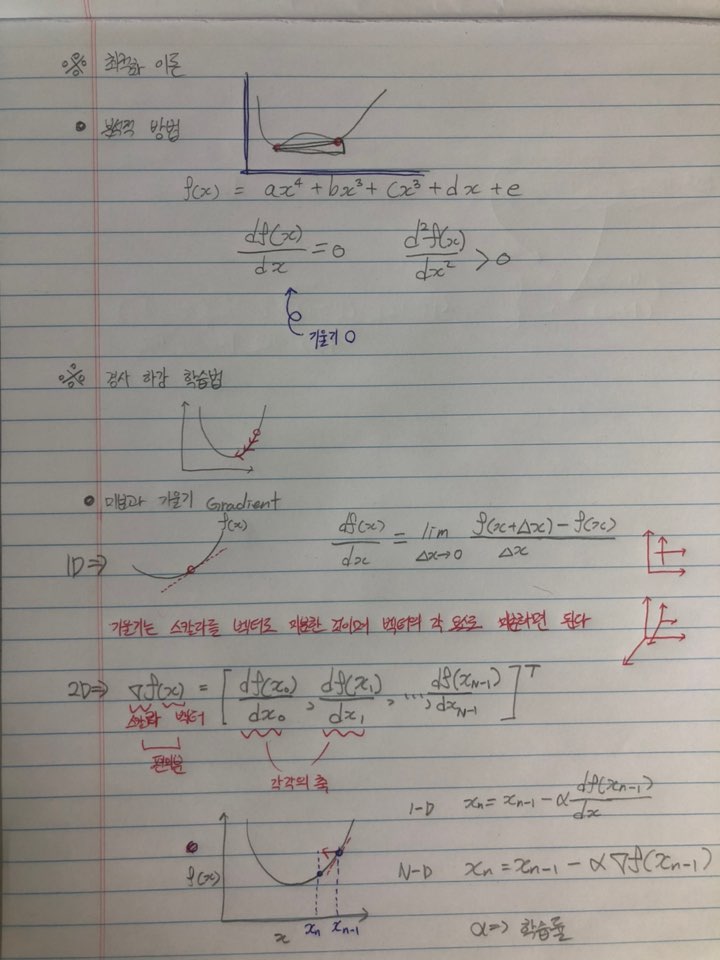 ※ 최적화 이론
• 분석적 방법
f(x) = ax⁴ + bx³ + cx³ + dx + e
df(x)/dx = 0    d²f(x)/dx² > 0
기울기 0
※ 경사 하강 학습법
• 미분과 기울기 Gradient
f(x)
1D ⇒    df(x)/dx = lim Δx→0 f(x+Δx) - f(x) / Δx
기울기는 스칼라를 벡터로 미분한 것이며 벡터의 각 요소로 미분하면 된다
2D ⇒ ∇f(x) = [ df(x₀)/dx₀, df(x₁)/dx₁, ..., df(x_N-1)/dx_N-1 ]ᵀ
스칼라 벡터
편미분
각각의 축
1-D  x_n = x_n-1 - α df(x_n-1)/dx
f(x)
N-D  x_n = x_n-1 - α ∇f(x_n-1)
x  x_n  x_n-1
α ⇒ 학습률